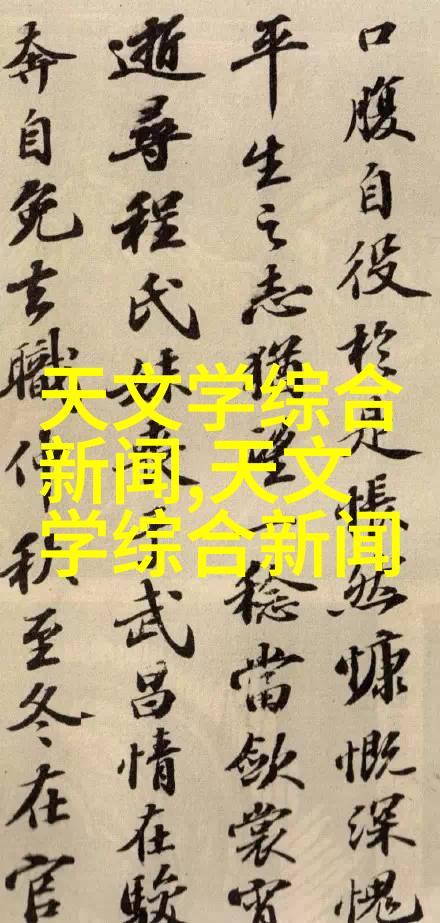 口腹自役於是悵然慷慨深愧
平生之志猶望一稔當斂裳宵
逝尋程氏妹喪于武昌情在駿
奔自免去職仲秋至冬在官
天文学综合
新闻,天文
学综合新闻